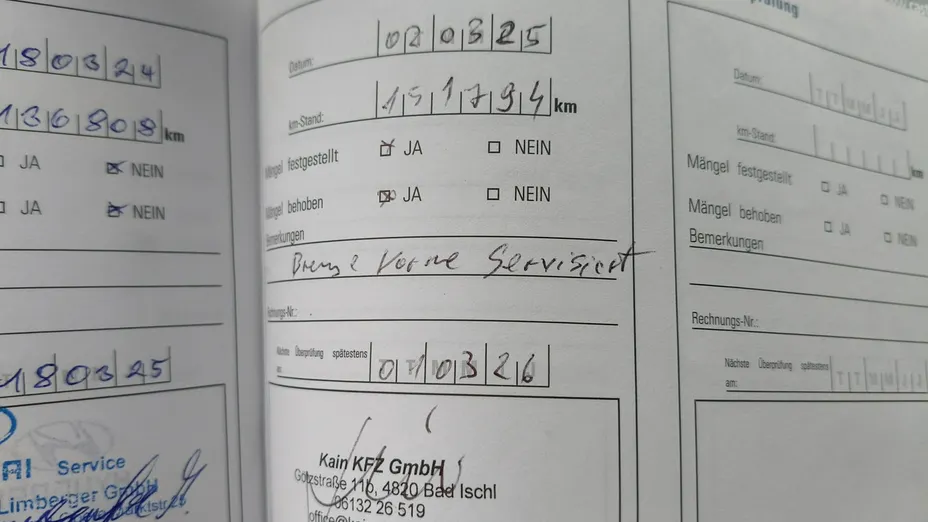 180324
136808 km
JA NEIN
JA NEIN
180325
AI Service
Limberger GmbH
Datum: 020325
km-Stand: 151794 km
Mängel festgestellt JA NEIN
Mängel behoben JA NEIN
Bemerkungen
Bremse Vorne Servisiert
Rechnungs-Nr.:
Nächste Überprüfung spätestens
am: 010326
Kain KFZ GmbH
Götzstraße 11b, 4820 Bad Ischl
06132 26 519
Datum: TTMMJJ
km-Stand: km
Mängel festgestellt JA NEIN
Mängel behoben JA NEIN
Bemerkungen
Rechnungs-Nr.:
Nächste Überprüfung spätestens
am: TTMMJJ